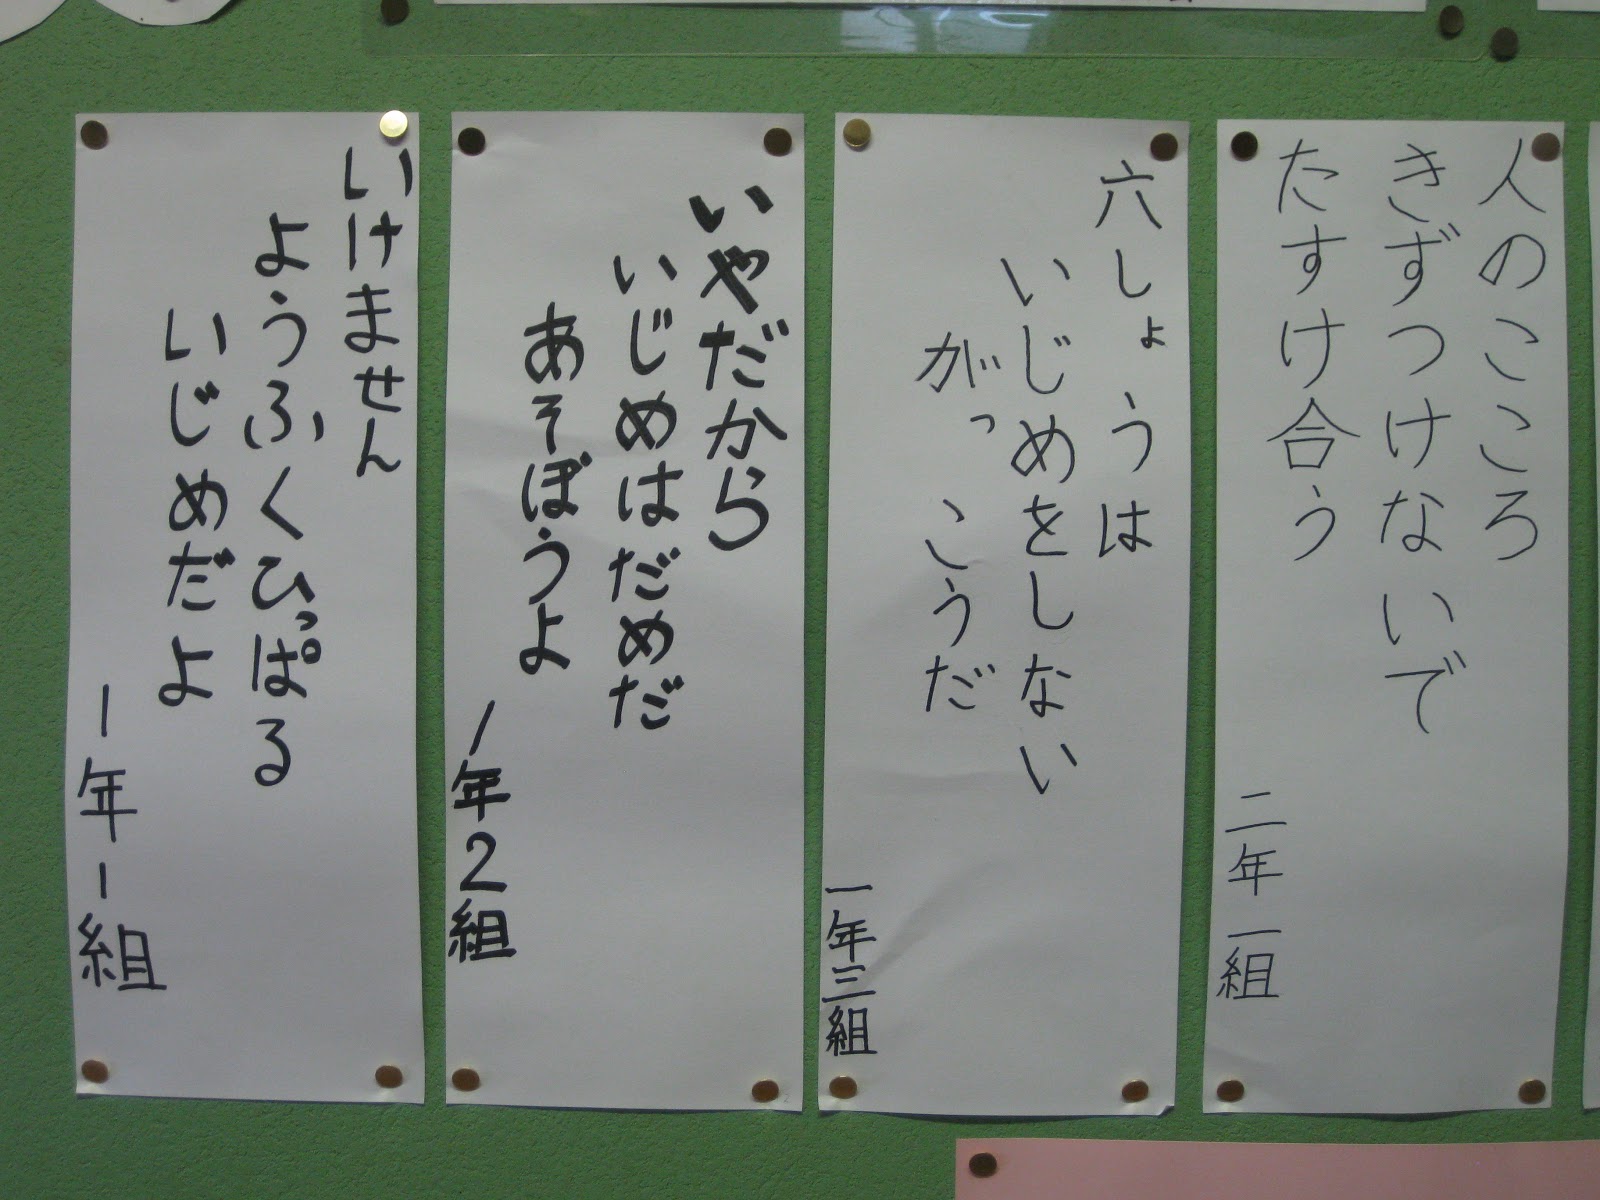 いけません
ようふくひっぱる
いじめだよ
1年1組
いやだから
いじめはだめだ
あそぼうよ
1年2組
六しょうは
いじめをしない
がっこうだ
一年三組
人のこころ
きずつけないで
たすけ合う
二年一組